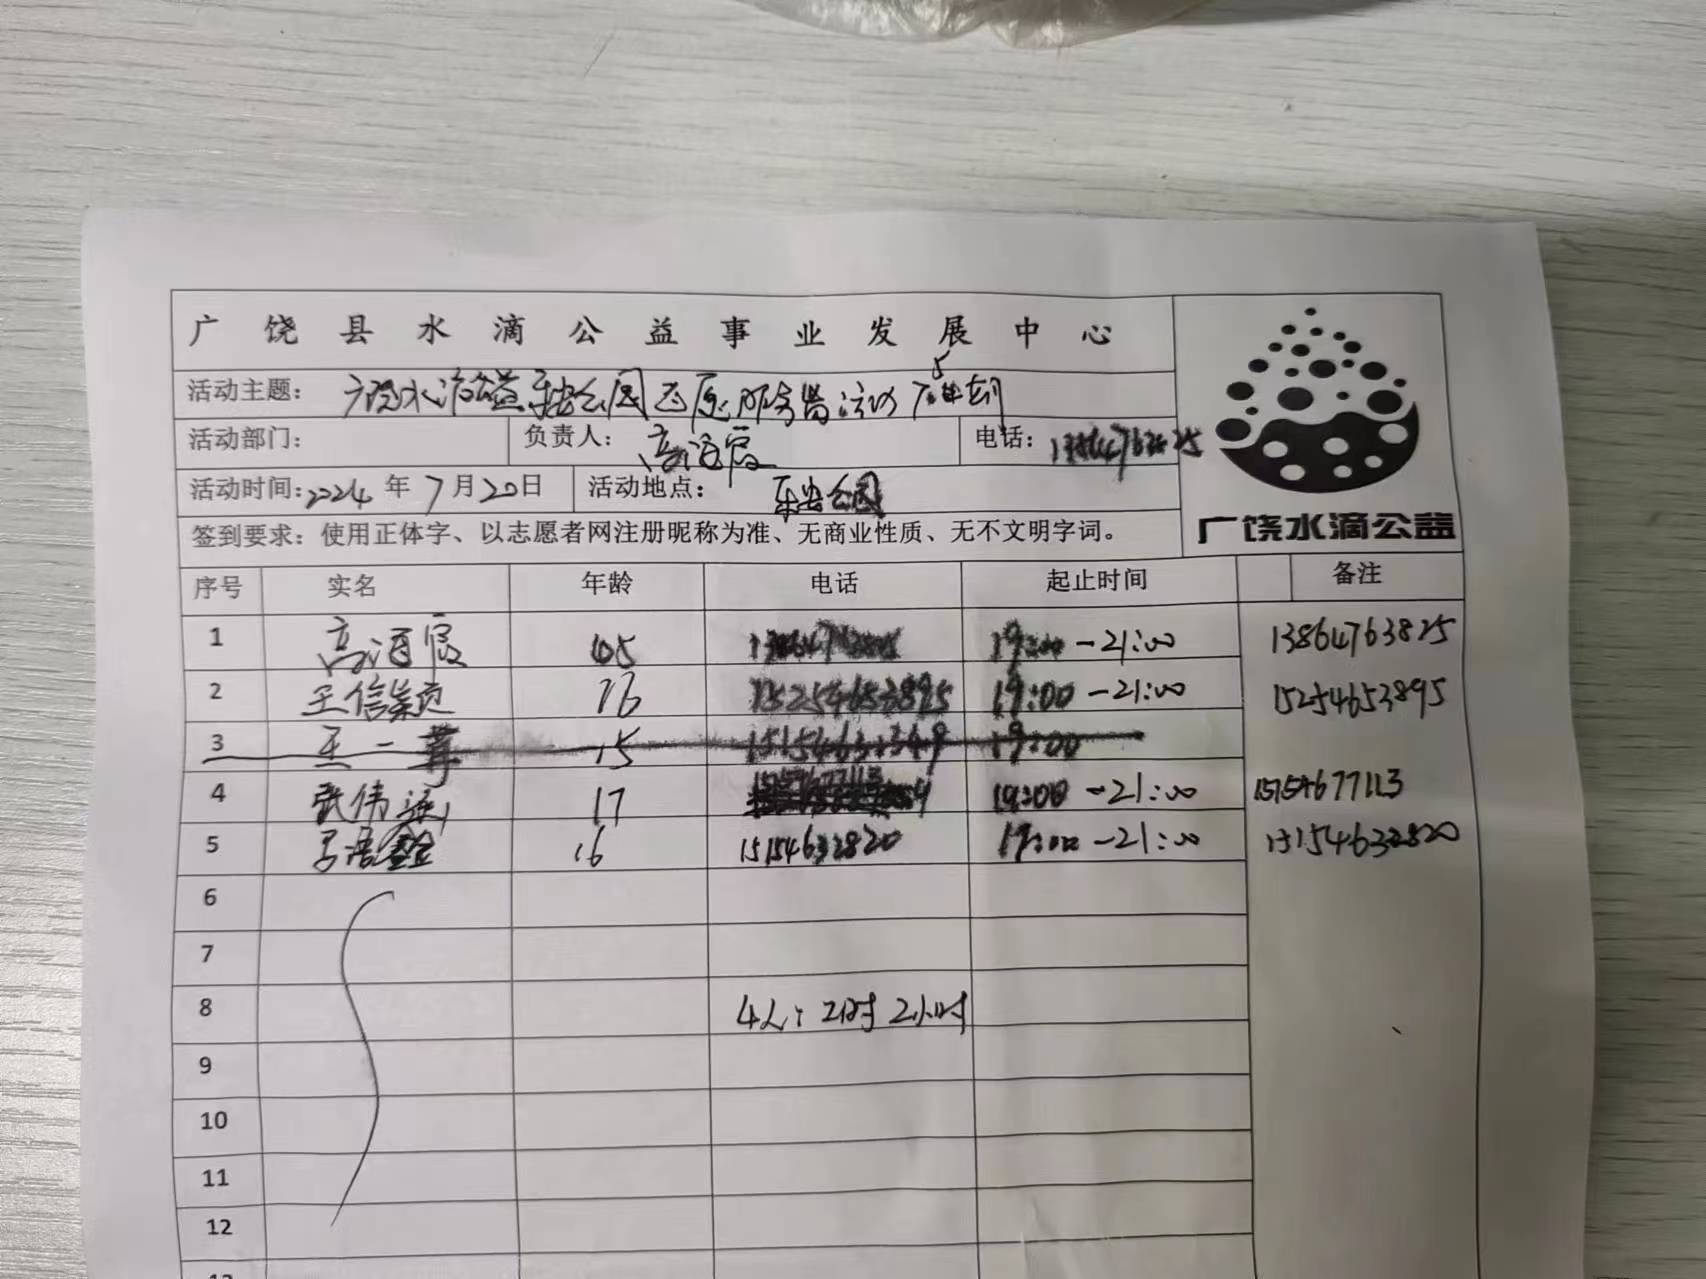 广饶县水滴公益事业发展中心
活动主题：广饶水滴公益乐安公园志愿服务
活动部门： 负责人：高 霞 电话：
活动时间：2024年7月20日 活动地点：乐安公园
签到要求：使用正体字、以志愿者网注册昵称为准、无商业性质、无不文明字词。
广饶水滴公益
序号 实名 年龄 电话 起止时间 备注
1 高 霞 45 19:00-21:00 13864763825
2 王信 16 15254653895 19:00-21:00 15254653895
3 王一 15 19:00
4 张伟 17 15154677113 19:00-21:00 15154677113
5 浩鑫 16 15154632820 19:00-21:00 15154632820
6
7
8 4人: 2时 2小时
9
10
11
12
13